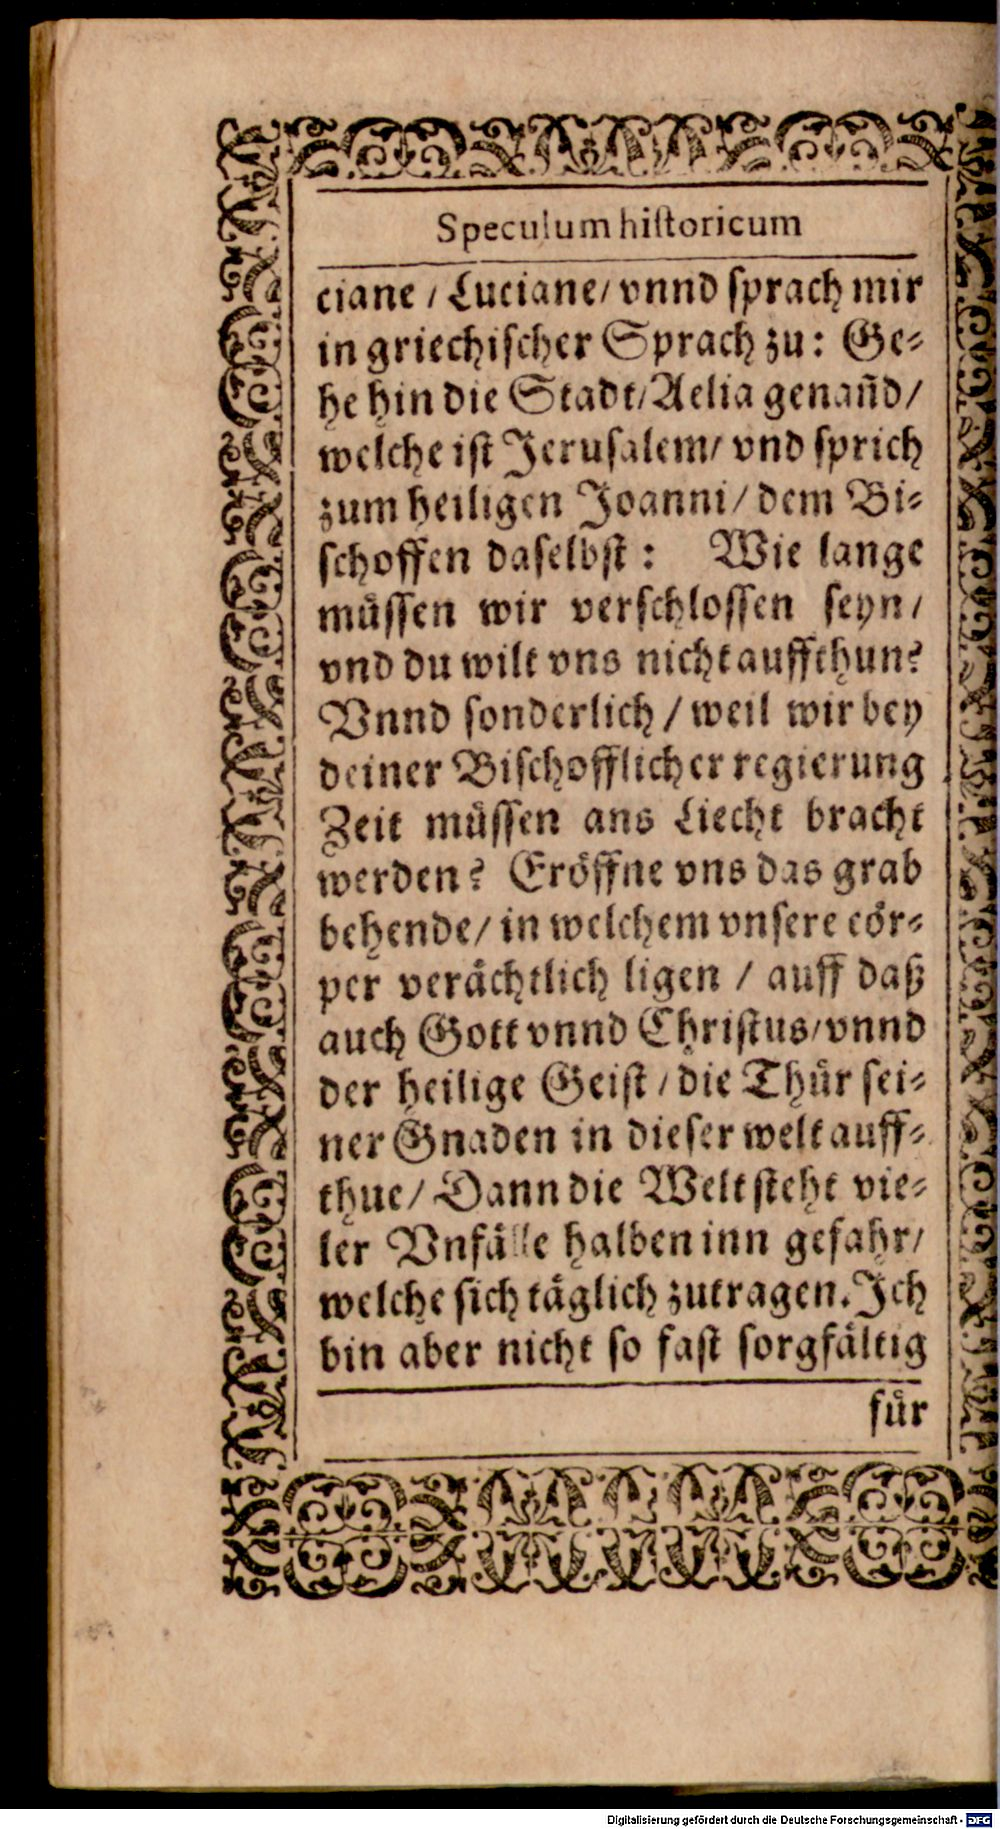 Speculum historicum
ciane / Luciane/ vnnd sprach mir
in griechischer Sprach zu: Ge⸗
he hin die Stadt/ Aelia genañd/
welche ist Jerusalem/ vnd sprich
zum heiligen Joanni/ dem Bi⸗
schoffen daselbst: Wie lange
müssen wir verschlossen seyn/
vnd du wilt vns nicht auffthun?
Vnnd sonderlich / weil wir bey
deiner Bischofflicher regierung
Zeit müssen ans Liecht bracht
werden? Eröffne vns das grab
behende/ in welchem vnsere cör⸗
per verächtlich ligen / auff daß
auch Gott vnnd Christus/ vnnd
der heilige Geist / die Thür sei⸗
ner Gnaden in dieser welt auff⸗
thue/ Dann die Welt steht vie⸗
ler Vnfälle halben inn gefahr/
welche sich täglich zutragen. Ich
bin aber nicht so fast sorgfältig
für
Digitalisierung gefördert durch die Deutsche Forschungsgemeinschaft - DFG